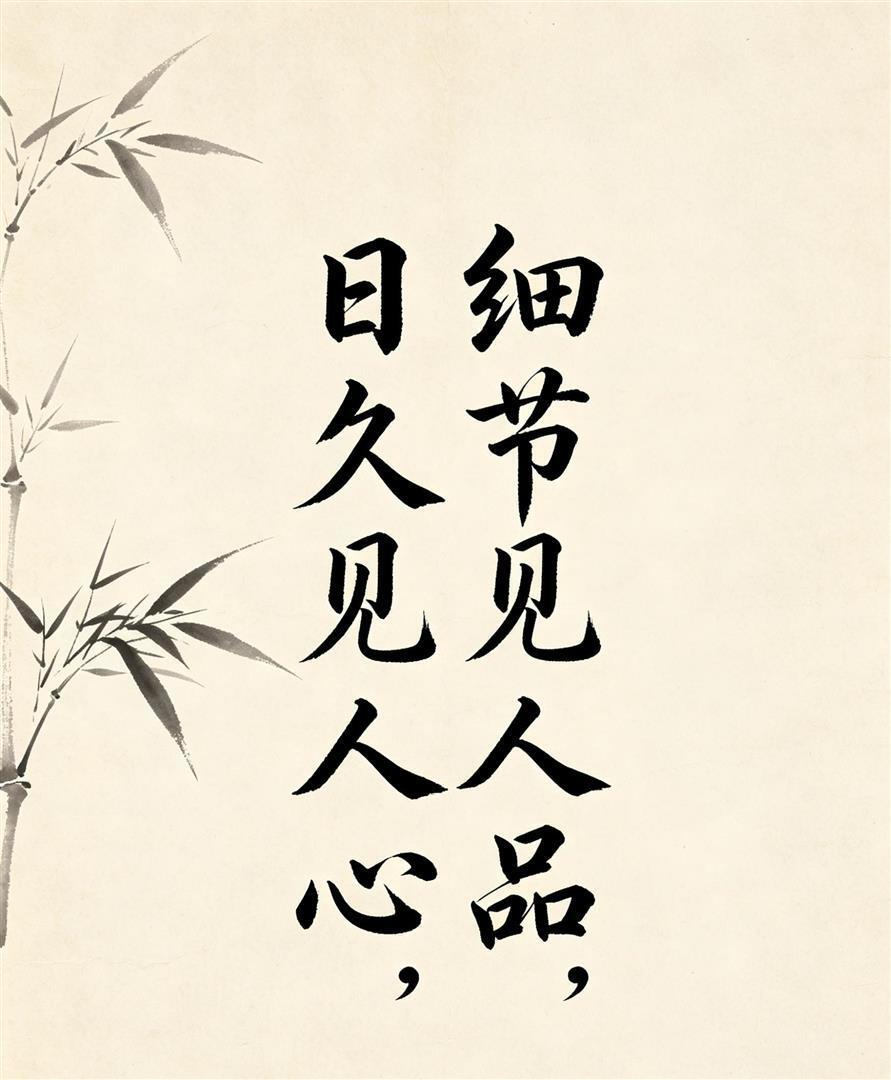 细节见人品，
日久见人心，